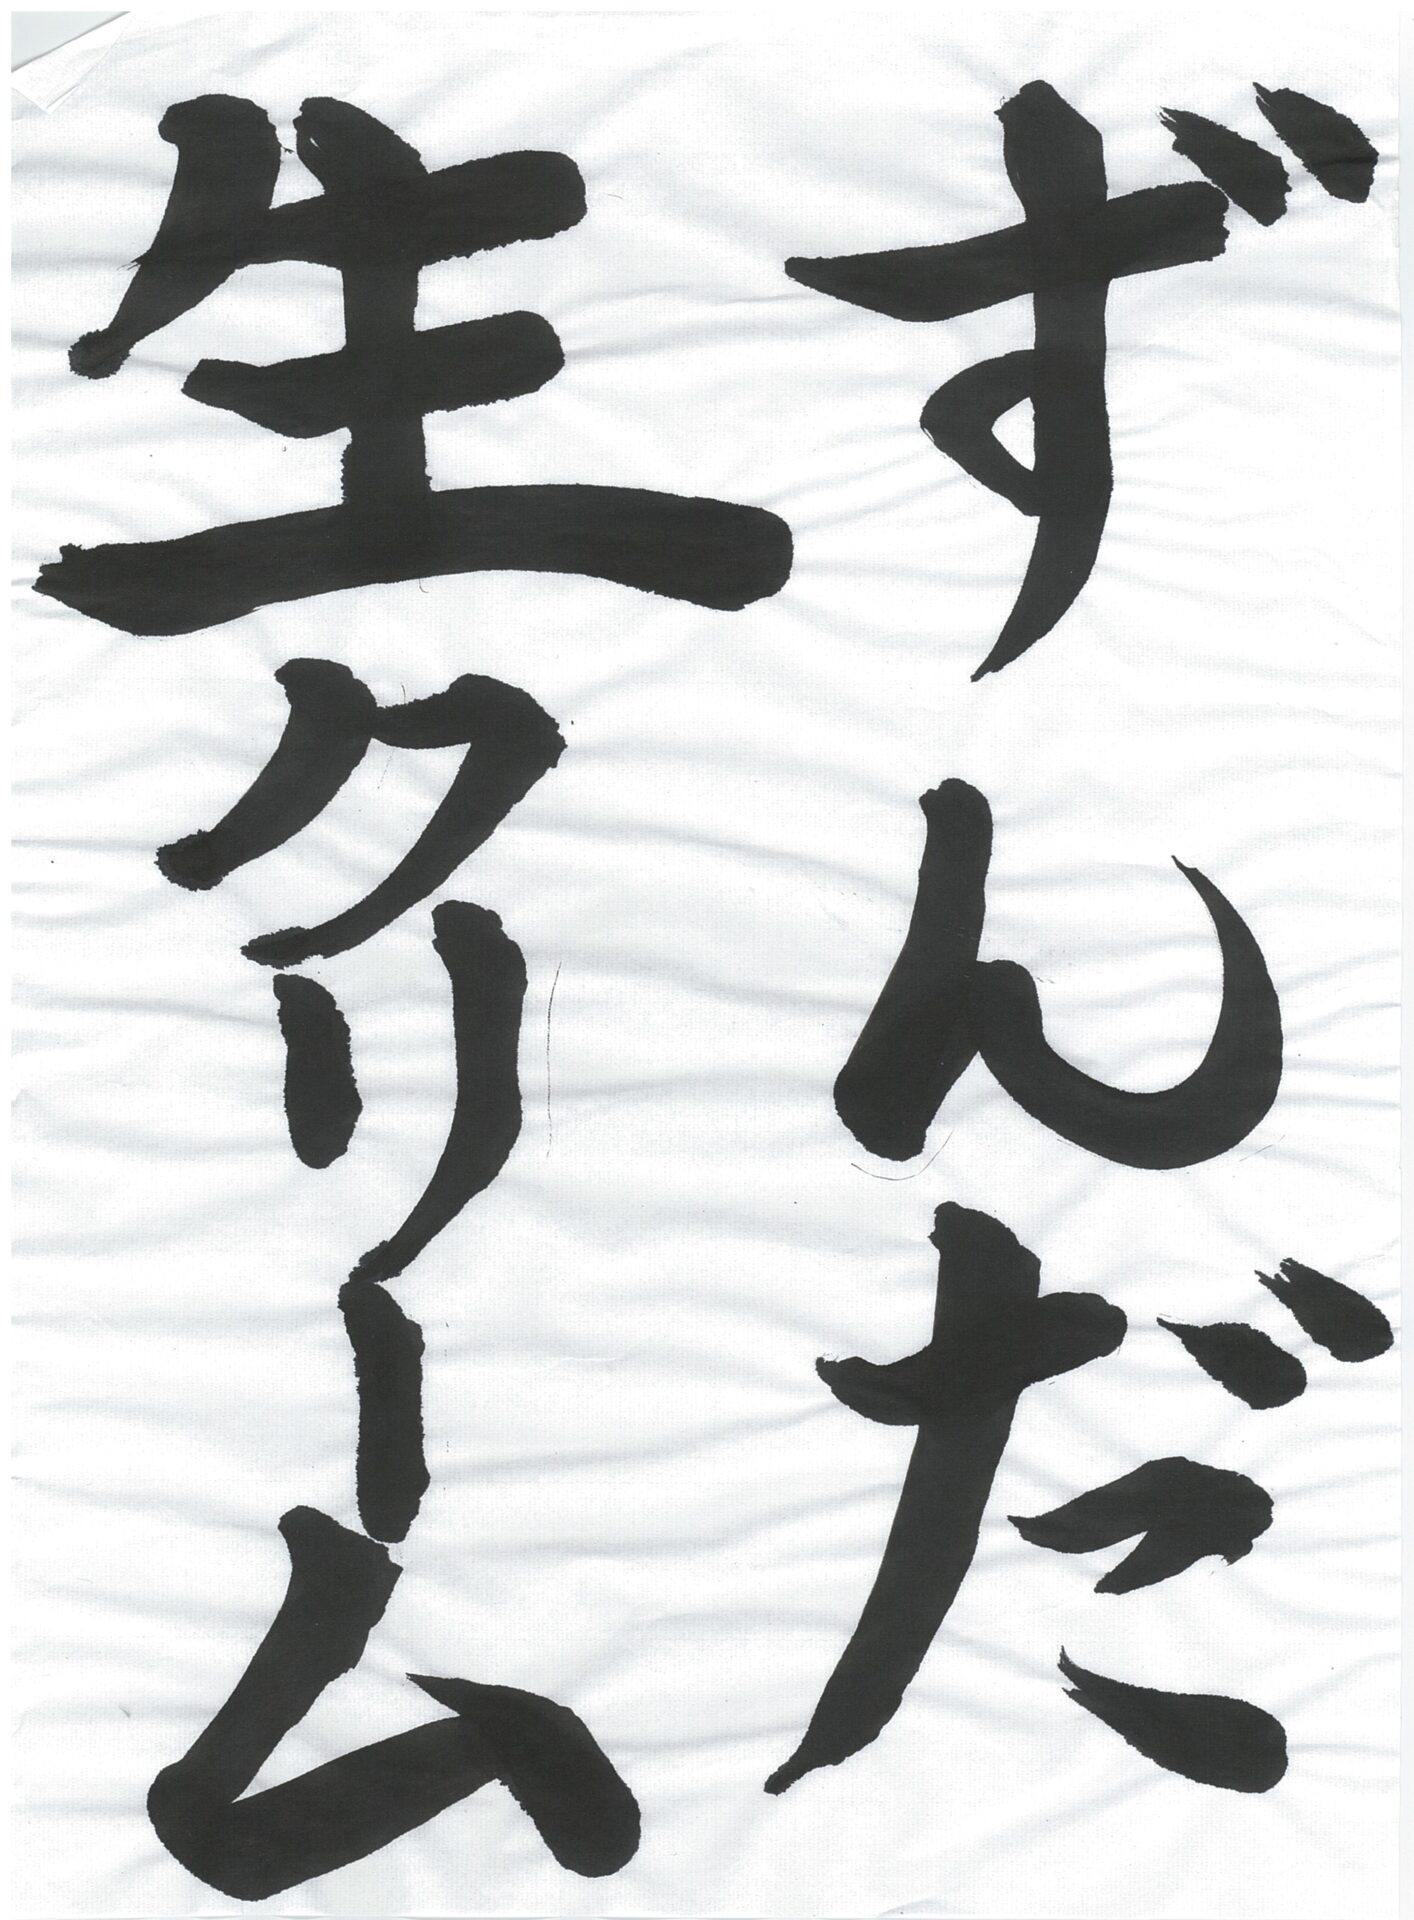 ずんだ
生クリーム